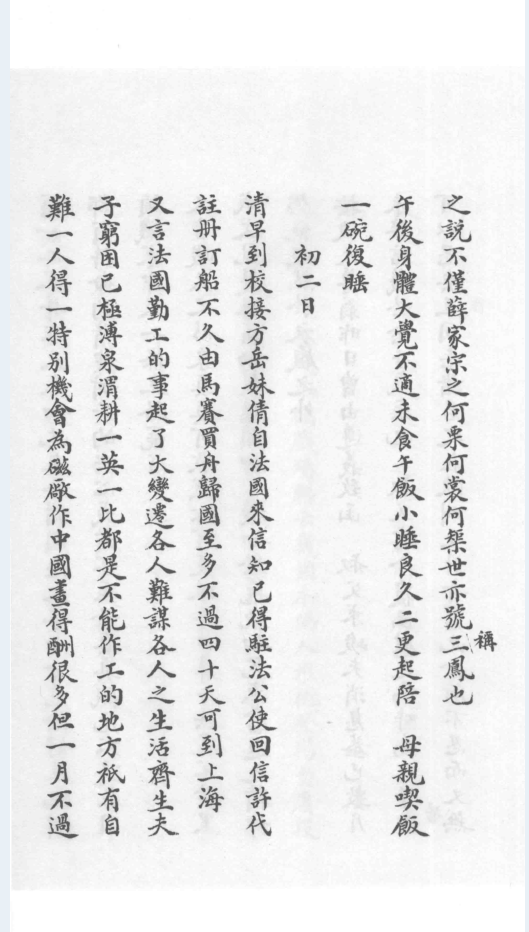 之說不僅薛家宗之何栗何裳何榘世亦號三鳳也
稱
午後身體大覺不適未食午飯小睡良久二更起陪 母親喫飯
一碗復睡
初二日
清早到校接方岳妹倩自法國來信知已得駐法公使回信許代
註册訂船不久由馬賽買舟歸國至多不過四十天可到上海
又言法國勤工的事起了大變遷各人難謀各人之生活齊生夫
子窮困已極溥泉渭耕一英一比都是不能作工的地方祇有自
難一人得一特别機會為磁廠作中國畫得酬很多但一月不過